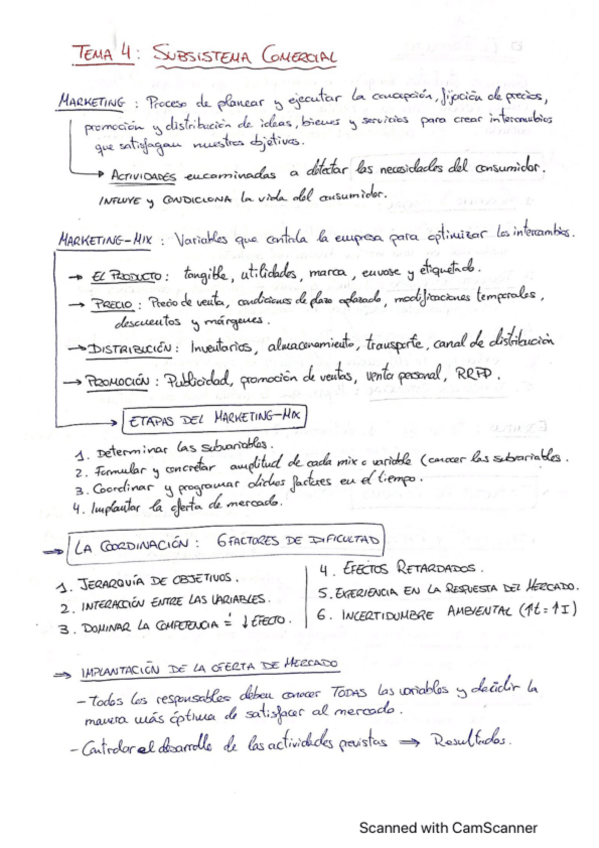 TEMA 4: SUBSISTEMA COMERCIAL
MARKETING: Proceso de planear y ejecutar la concepción, fijación de precios,
promoción y distribución de ideas, bienes y servicios para crear intercambios
que satisfagan nuestros objetivos.
→ ACTIVIDADES encaminadas a detectar las necesidades del consumidor.
INFLUYE y CONDICIONA la vida del consumidor.
MARKETING-MIX: Variables que controla la empresa para optimizar los intercambios.
→ EL PRODUCTO: tangible, utilidades, marca, envase y etiquetado.
→ PRECIO: Precio de venta, condiciones de plazo aplazado, modificaciones temporales,
descuentos y márgenes.
→ DISTRIBUCIÓN: Inventarios, almacenamiento, transporte, canal de distribución
→ PROMOCIÓN: Publicidad, promoción de ventas, venta personal, RRPP.
→ ETAPAS DEL MARKETING-MIX
1. Determinar las subvariables.
2. Formular y concretar amplitud de cada mix o variable (conocer las subvariables.
3. Coordinar y programar dichos factores en el tiempo.
4. Implantar la oferta de mercado.
→ LA COORDINACIÓN: 6 FACTORES DE DIFICULTAD
1. JERARQUÍA DE OBJETIVOS.
2. INTERACCIÓN ENTRE LAS VARIABLES.
3. DOMINAR LA COMPETENCIA = ↓ EFECTO.
4. EFECTOS RETARDADOS.
5. EXPERIENCIA EN LA RESPUESTA DEL MERCADO.
6. INCERTIDUMBRE AMBIENTAL (↑t = ↑I)
→ IMPLANTACIÓN DE LA OFERTA DE MERCADO
- Todos los responsables deben conocer TODAS las variables y decidir la
manera más óptima de satisfacer al mercado.
- Controlar el desarrollo de las actividades previstas → Resultados.
Scanned with CamScanner